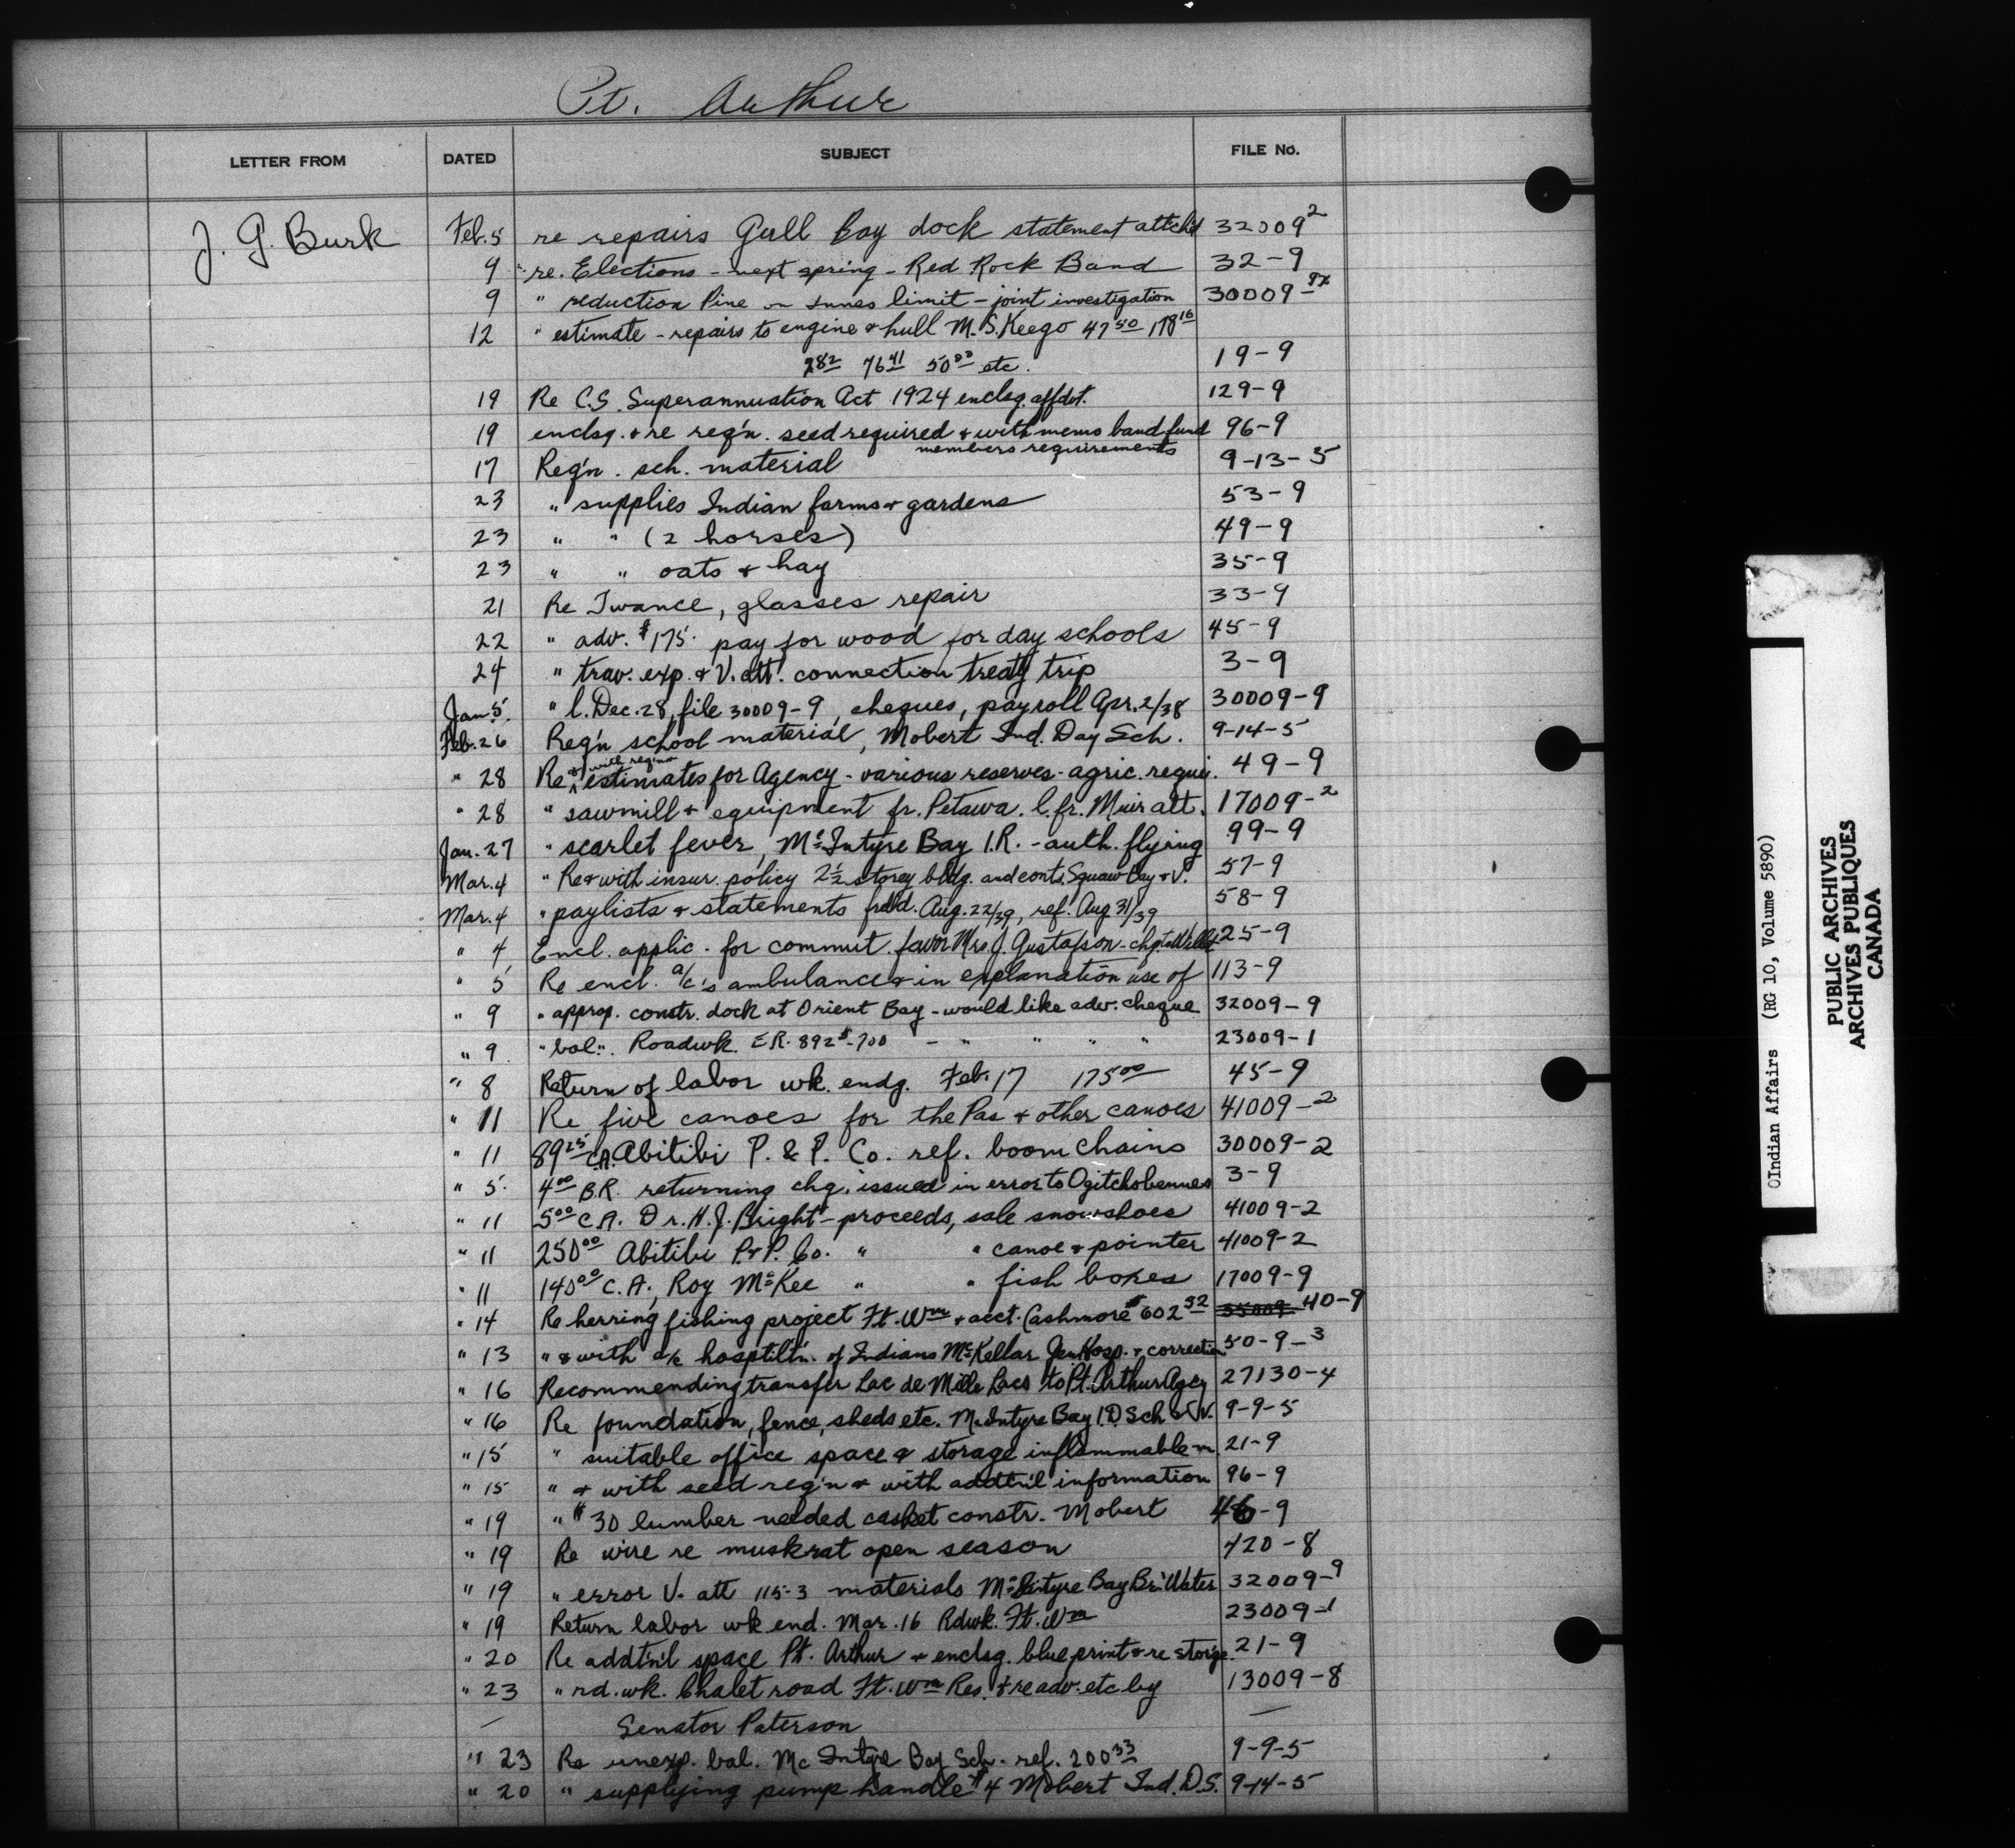 Pt. Arthur
LETTER FROM DATED SUBJECT FILE No.
J. G. Burk Feb. 5 re repairs Gull Bay dock statement attch'd 32009 2
9 " re. Elections - next spring - Red Rock Band 32-9
9 " reduction Pine limit - joint investigation 30009-9x
12 " estimate - repairs to engine & hull M.S. Keego 47 50 178 16
282 76 41 50 00 etc. 19-9
19 Re C.S. Superannuation Act 1924 enclsg. affdvt. 129-9
19 enclsg. & re reg'n. seed required & with memo band fund 96-9
members requirements
17 Reg'n. sch. material 9-13-5
23 " supplies Indian farms & gardens 53-9
23 " " (2 horses) 49-9
23 " " oats & hay 35-9
21 Re Twance, glasses repair 33-9
22 " adv. $175. pay for wood for day schools 45-9
24 " trav. exp. & V. att. connection treaty trip 3-9
Jan. 5. " l. Dec. 28, file 30009-9, cheques, payroll Apr. 2/38 30009-9
Feb. 26 Reg'n school material, Mobert Ind. Day Sch. 9-14-5
& with reg'ns
" 28 Re estimates for Agency - various reserves - agric. requi. 49-9
" 28 " sawmill & equipment fr. Petawa. l. fr. Muir att. 17009-2
Jan. 27 " scarlet fever, McIntyre Bay I.R. - auth. flying 99-9
Mar. 4 " Re & with insur. policy 2½ storey bldg. and conts. Squaw Bay & V. 57-9
Mar. 4 " paylists & statements fr'd. Aug. 22/39, ref. Aug 31/39 58-9
" 4 Encl. applic. for commut. favor Mrs. J. Gustafson - 25-9
" 5 Re encl. a/c's ambulance & in explanation use of 113-9
" 9 " approp. constr. dock at Orient Bay - would like adv. cheque 32009-9
" 9. " bal. " Roadwk. E.R. 892 $-700 - " " " " 23009-1
" 8 Return of labor wk. endg. Feb. 17 175 00 45-9
" 11 Re five canoes for the Pas & other canoes 41009-2
" 11 89 25 C.A. Abitibi P. & P. Co. ref. boom chains 30009-2
" 5. 4 00 B.R. returning chq. issued in error to Ogitchobennes 3-9
" 11 5 00 C.A. Dr. H.J. Bright - proceeds, sale snowshoes 41009-2
" 11 250 00 Abitibi P. & P. Co. " " canoe & pointer 41009-2
" 11 140 00 C.A., Roy McKee " " fish boxes 17009-9
" 14 Re herring fishing project Ft. Wm & acct. Cashmore $ 602 52 55009 40-9
" 13 " & with a/c hospitlt'n. of Indians McKellar Gen Hosp. & correction 50-9-3
" 16 Recommending transfer Lac de Mille Lacs to Pt. Arthur Agcy 27130-4
" 16 Re foundation, fence, sheds etc. McIntyre Bay I.D. Sch & V. 9-9-5
" 15 " suitable office space & storage inflammable m. 21-9
" 15 " & with seed reg'n & with addtn'l information 96-9
" 19 " $30 lumber needed casket constr. Mobert 46-9
" 19 Re wire re muskrat open season 420-8
" 19 " error V. att 115-3 materials McIntyre Bay Br. Water 32009-9
" 19 Return labor wk end. Mar. 16 Rdwk. Ft. Wm 23009-1
" 20 Re addtn'l space Pt. Arthur & enclsg. blue print & re stor'ge. 21-9
" 23 " rd. wk. Chalet road Ft. Wm Res. & re adv. etc by 13009-8
— Senator Paterson —
" 23 Re unexp. bal. McIntyre Bay Sch. ref. 200 33 9-9-5
" 20 " supplying pump handle $4 Mobert Ind. D.S. 9-14-5
OIndian Affairs (RG 10, Volume 5890)
PUBLIC ARCHIVES
ARCHIVES PUBLIQUES
CANADA